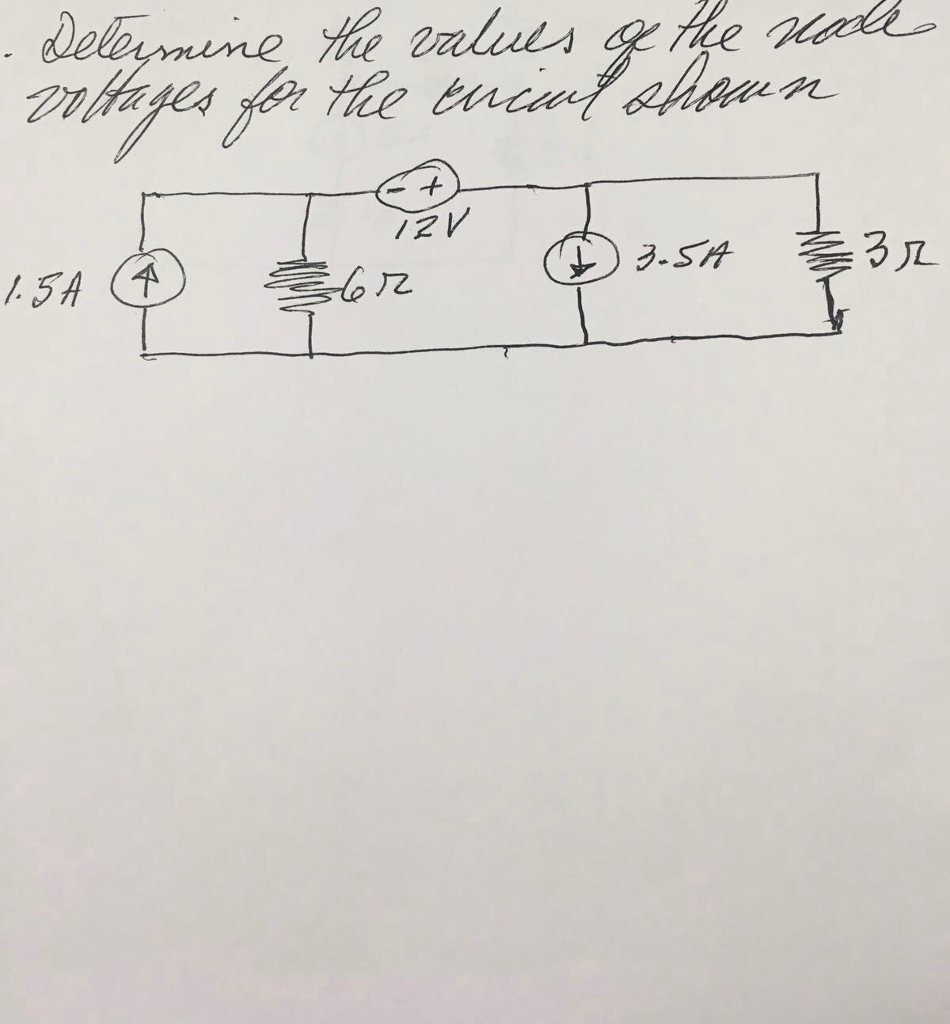 . Determine the values of the node
voltages for the circuit shown
- +
12V
1.5A
6Ω
3.5A
3Ω